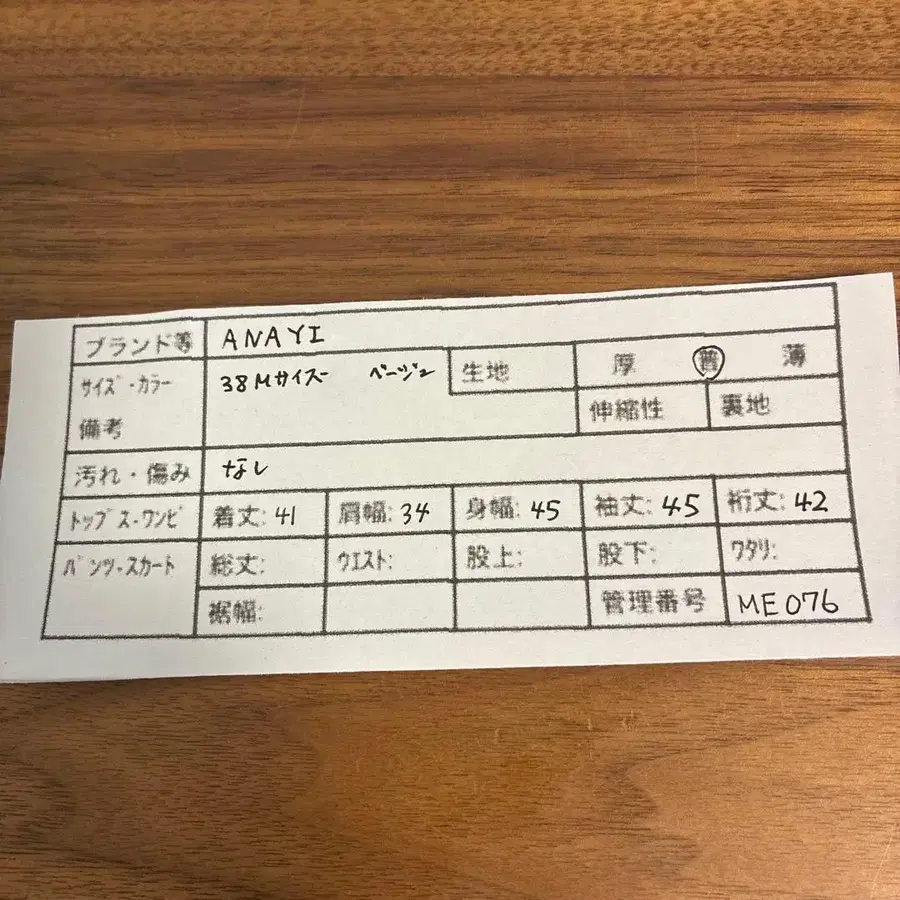 ブランド等 ANAYI
サイズ・カラー 38Mサイズ ベージュ 生地 厚 普 薄
備考 伸縮性 裏地
汚れ・傷み なし
トップス・ワンピ 着丈: 41 肩幅: 34 身幅: 45 袖丈: 45 裄丈: 42
パンツ・スカート 総丈: ウエスト: 股上: 股下: ワタリ:
裾幅: 管理番号 ME076